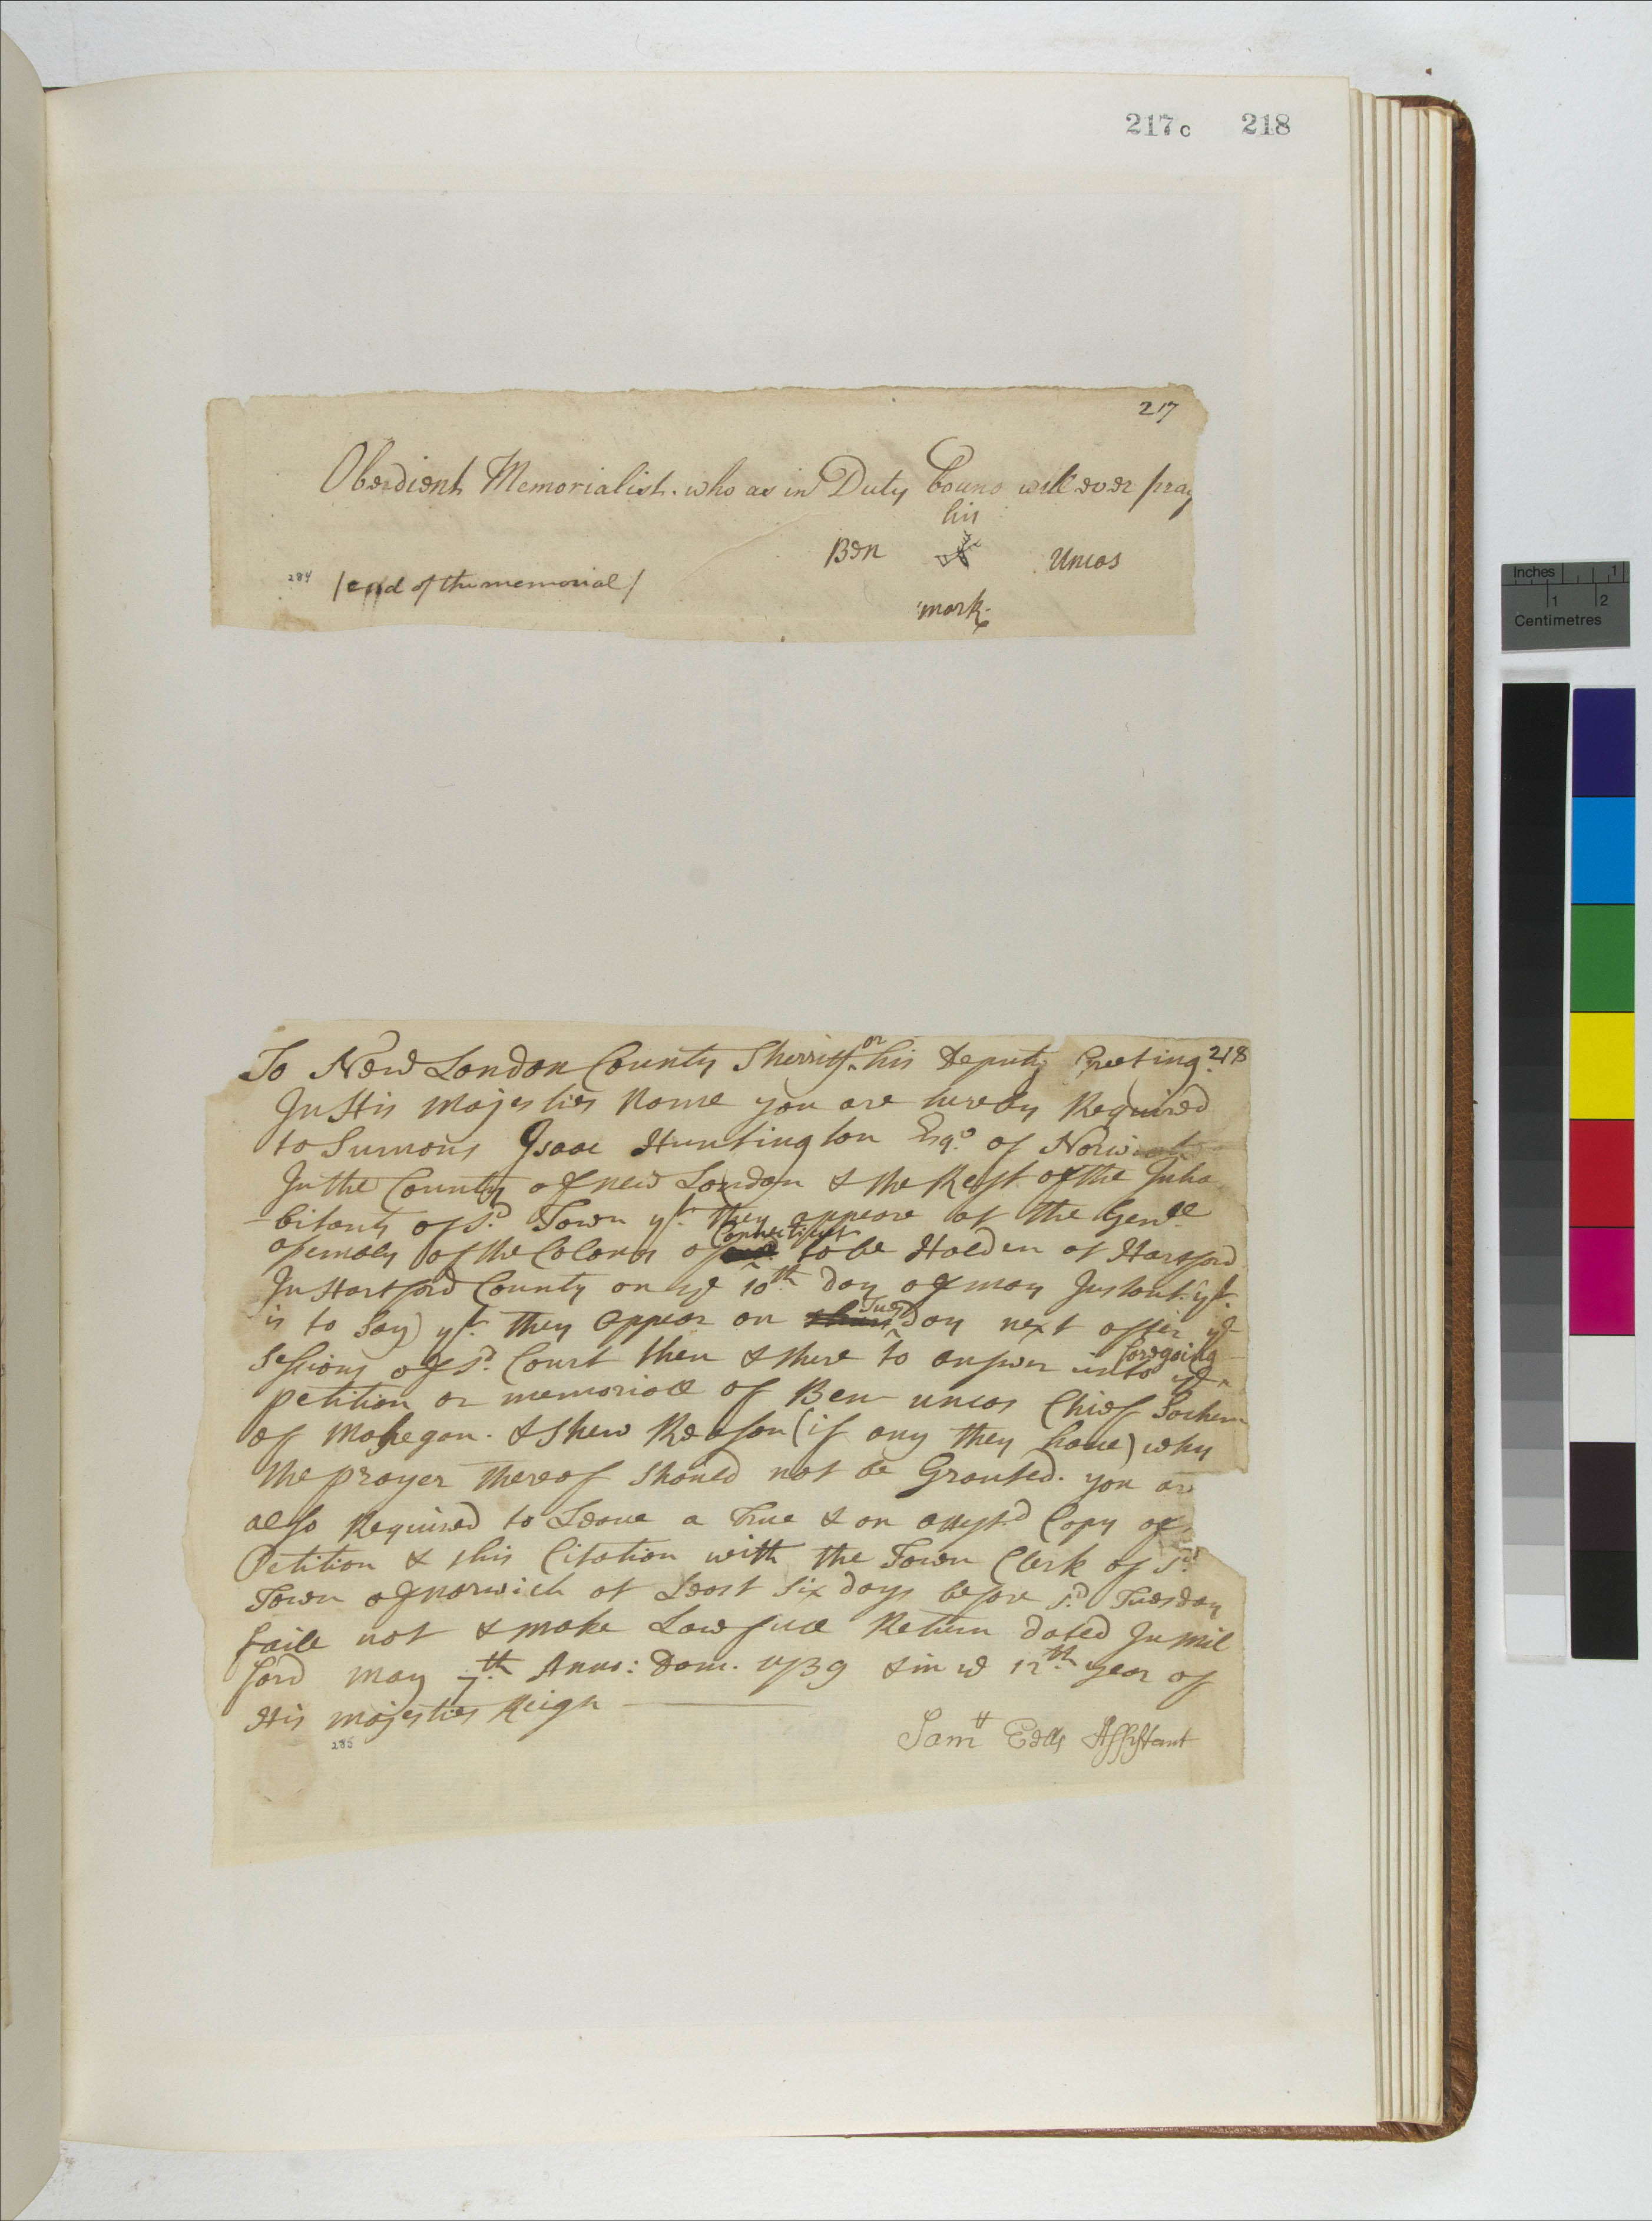 217c 218
217
Obedient Memorialist. who as in Duty bound will ever pray
his
Ben Uncas
mark
284 /end of the memorial/
To New London County Sherriff or his Deputy Greeting. 218
In His Majesties Name you are hereby Required
to Sumons Isaac Huntington Esqr. of Norwich
In the County of new London & the Rest of the Inha
-bitants of sd. Town yt. they appeare at the Genll
assembly of the Colony of Connecticut to be Holden at Hartford
In Hartford County on ye 10th day of may Instant. yt.
is to Say) yt. they Appear on Tuesday next after ye
Sessions of sd. Court then & there to answer unto ye foregoing
petition or memoriall of Ben uncas Chief Sachem
of Mohegan. & Shew Reason (if any they have) why
the prayer thereof should not be Granted. you are
also Required to Leave a True & an attestd Copy of
Petition & this Citation with the Town Clerk of sd.
Town of norwich at Least six days before sd. Tuesday
faile not & make Lawfull Return dated In mil
ford may 7th Anno: Dom. 1739 & in ye 12th year of
His majesties Reign
285
Samll Eells Assistant
Inches 1
1 2
Centimetres